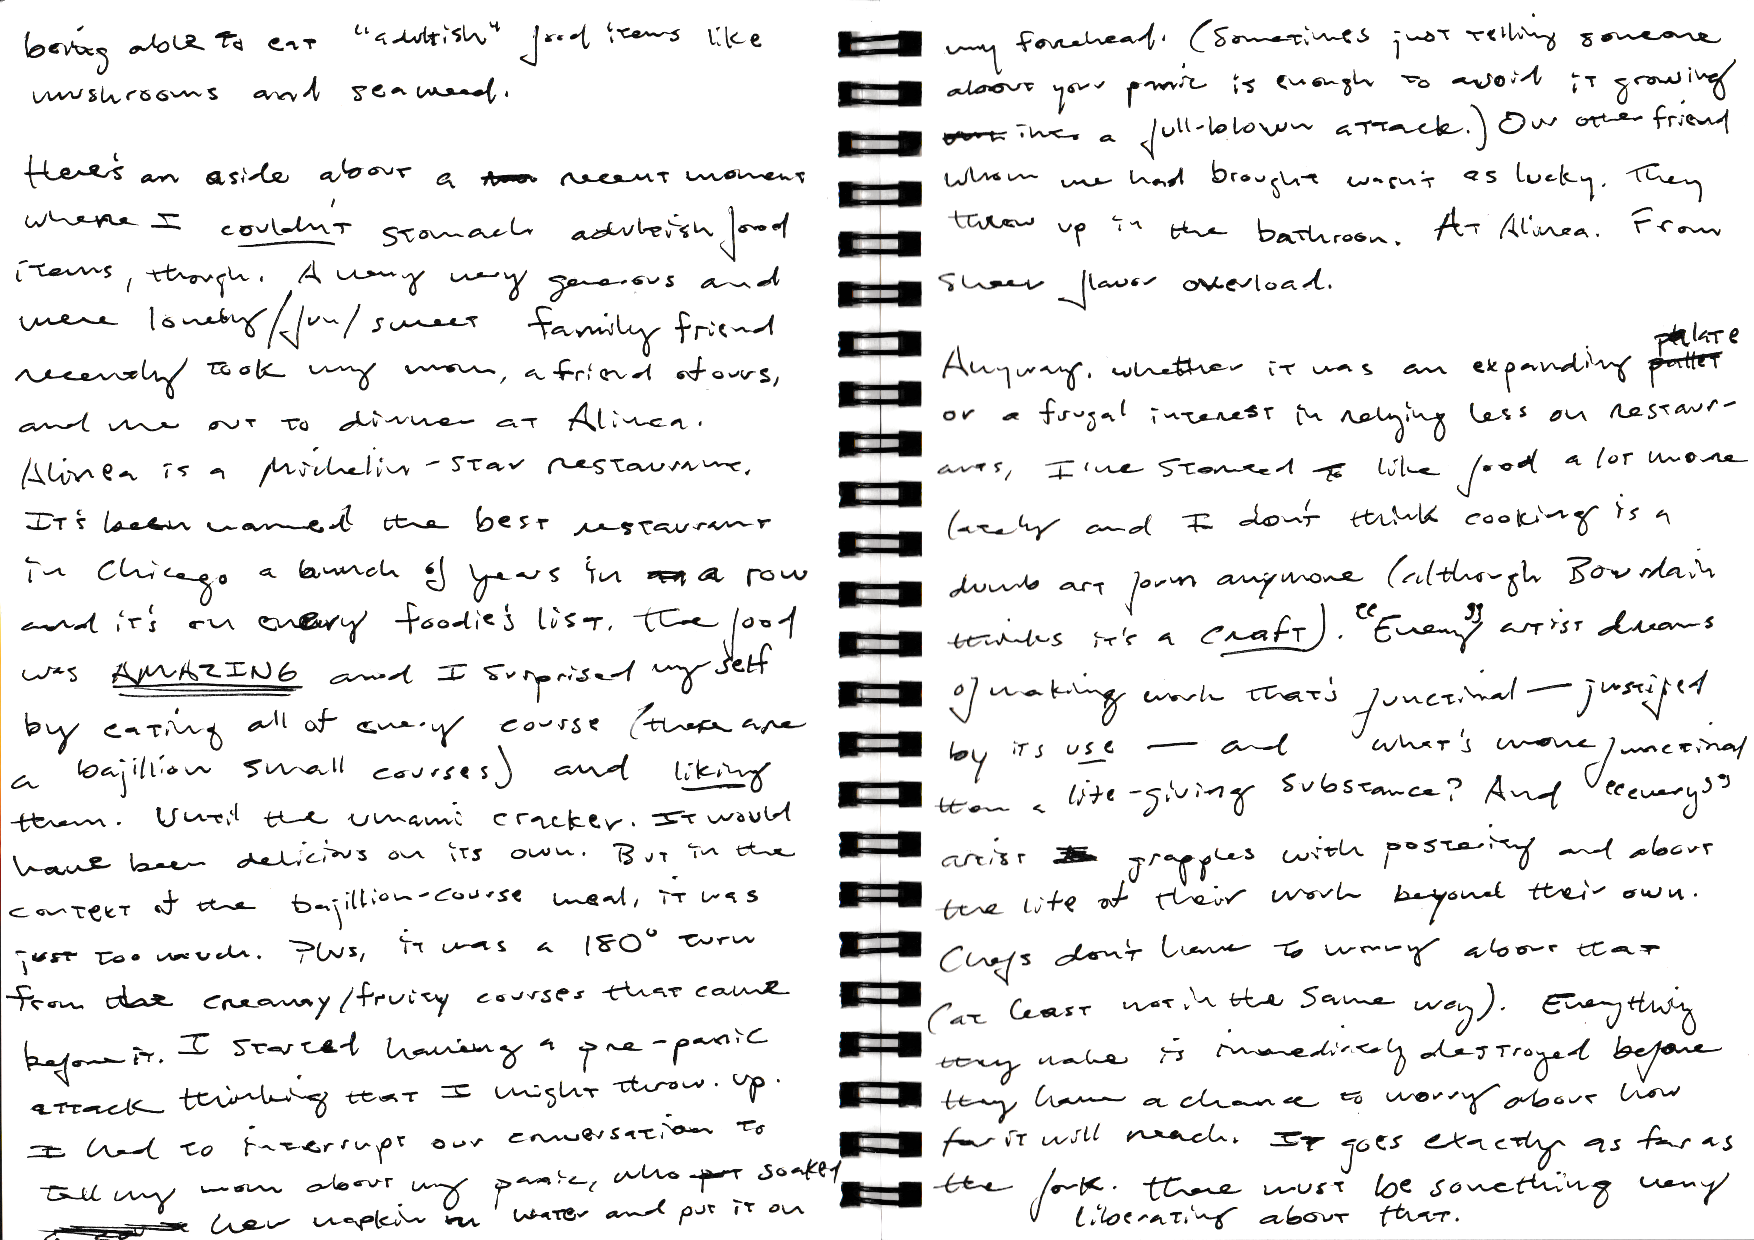 being able to eat "adultish" food items like
mushrooms and seaweed.
Here's an aside about a recent moment
where I couldn't stomach adultish food
items, though. A very very generous and
very lovely/fun/sweet family friend
recently took my mom, a friend of ours,
and me out to dinner at Alinea.
Alinea is a Michelin-star restaurant.
It's been named the best restaurant
in Chicago a bunch of years in a row
and it's on every foodie's list. The food
was AMAZING and I surprised myself
by eating all of every course (there are
a bajillion small courses) and liking
them. Until the umami cracker. It would
have been delicious on its own. But in the
context of the bajillion-course meal, it was
just too much. Plus, it was a 180° turn
from the creamy/fruity courses that came
before it. I started having a pre-panic
attack thinking that I might throw up.
I had to interrupt our conversation to
tell my mom about my panic, who soaked
her napkin in water and put it on
my forehead. (Sometimes just telling someone
about your panic is enough to avoid it growing
into a full-blown attack.) Our other friend
whom we had brought wasn't as lucky. They
threw up in the bathroom. At Alinea. From
sheer flavor overload.
Anyway, whether it was an expanding palate
or a frugal interest in relying less on restaur-
ants, I've started to like food a lot more
lately and I don't think cooking is a
dumb art form anymore (although Bourdain
thinks it's a craft). "Every" artist dreams
of making work that's functinal — justified
by its use — and what's more functinal
than a life-giving substance? And "every"
artist grapples with posterity and about
the life of their work beyond their own.
Chefs don't have to worry about that
(at least not in the same way). Everything
they make is immediately destroyed before
they have a chance to worry about how
far it will reach. It goes exactly as far as
the fork. There must be something very
liberating about that.